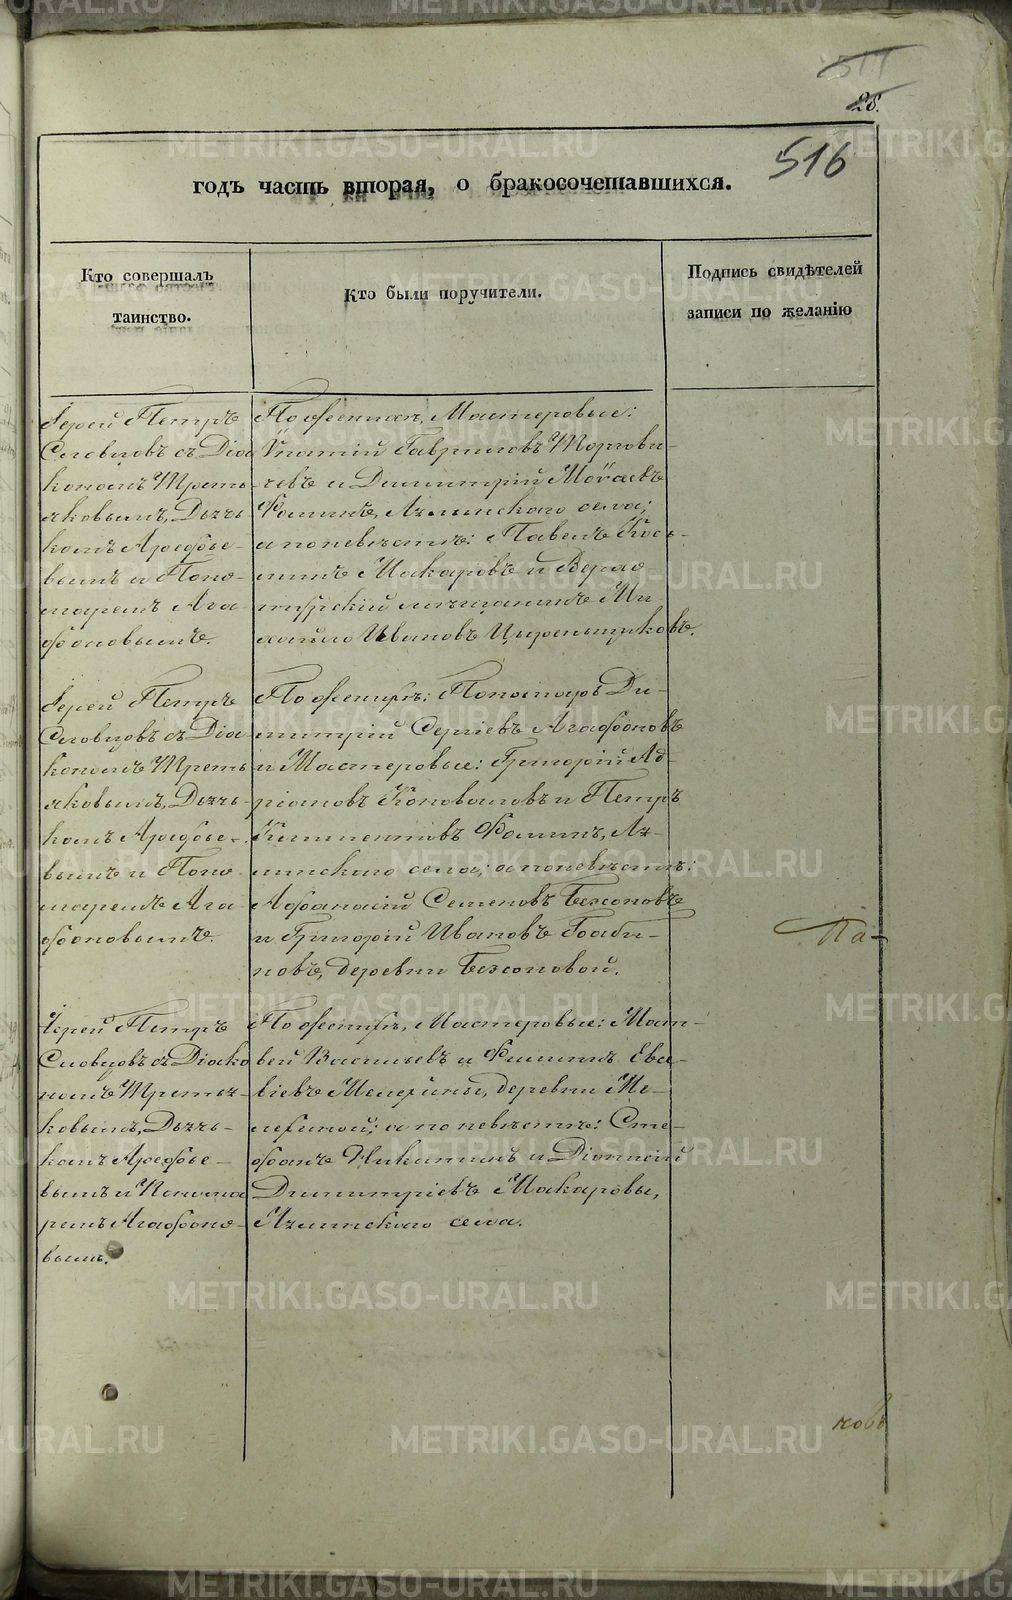 511
28.
516
годъ часть вторая, о бракосочетавшихся.
Кто совершалъ
таинство.
Кто были поручители.
Подпись свидѣтелей
записи по желанію
Іерей Петръ
Словцовъ съ Діа
кономъ Треть-
яковымъ, Дьячь-
комъ Арефье-
вымъ и Поно-
маремъ Ага-
фоновымъ.
По женихѣ, Мастеровые:
Ипатій Гавриловъ Торгови-
чевъ и Димитрій
Фоминъ, Аятскаго села;
а по невѣстѣ: Павелъ Кось-
минъ Макаровъ и Верхо-
турскій мѣщанинъ Ми-
хайло Ивановъ
Іерей Петръ
Словцовъ съ Діа-
кономъ Треть
яковымъ, Дьячь-
комъ Арефье-
вымъ и Поно-
маремъ Ага-
фоновымъ.
По женихѣ: Пономарь Ди-
митрій Сергіевъ Агафоновъ
и Мастеровые: Григорій Ад-
ріановъ Коноваловъ и Петръ
Климентовъ Фоминъ, Ая-
тскаго села; а по невѣстѣ:
Афанасій Семеновъ Беззоновъ
и Григорій Ивановъ Бъаби-
новъ, деревни Беззоновой.
Іерей Петръ
Словцовъ съ Діако
номъ Третья-
ковымъ, Дьячь-
комъ Арефье-
вымъ и Понома
ремъ Агафоно-
вымъ.
По женихѣ, Мастеровые: Мат-
вей Васильевъ и Филиппъ Ева-
віевъ Мелехины, деревни Ме-
лехиной; а по невѣстѣ: Сте-
фанъ Никитинъ и Діонисій
Димитріевъ Макаровы,
Аятскаго села.
Па-
новъ
METRIKI.GASO-URAL.RU